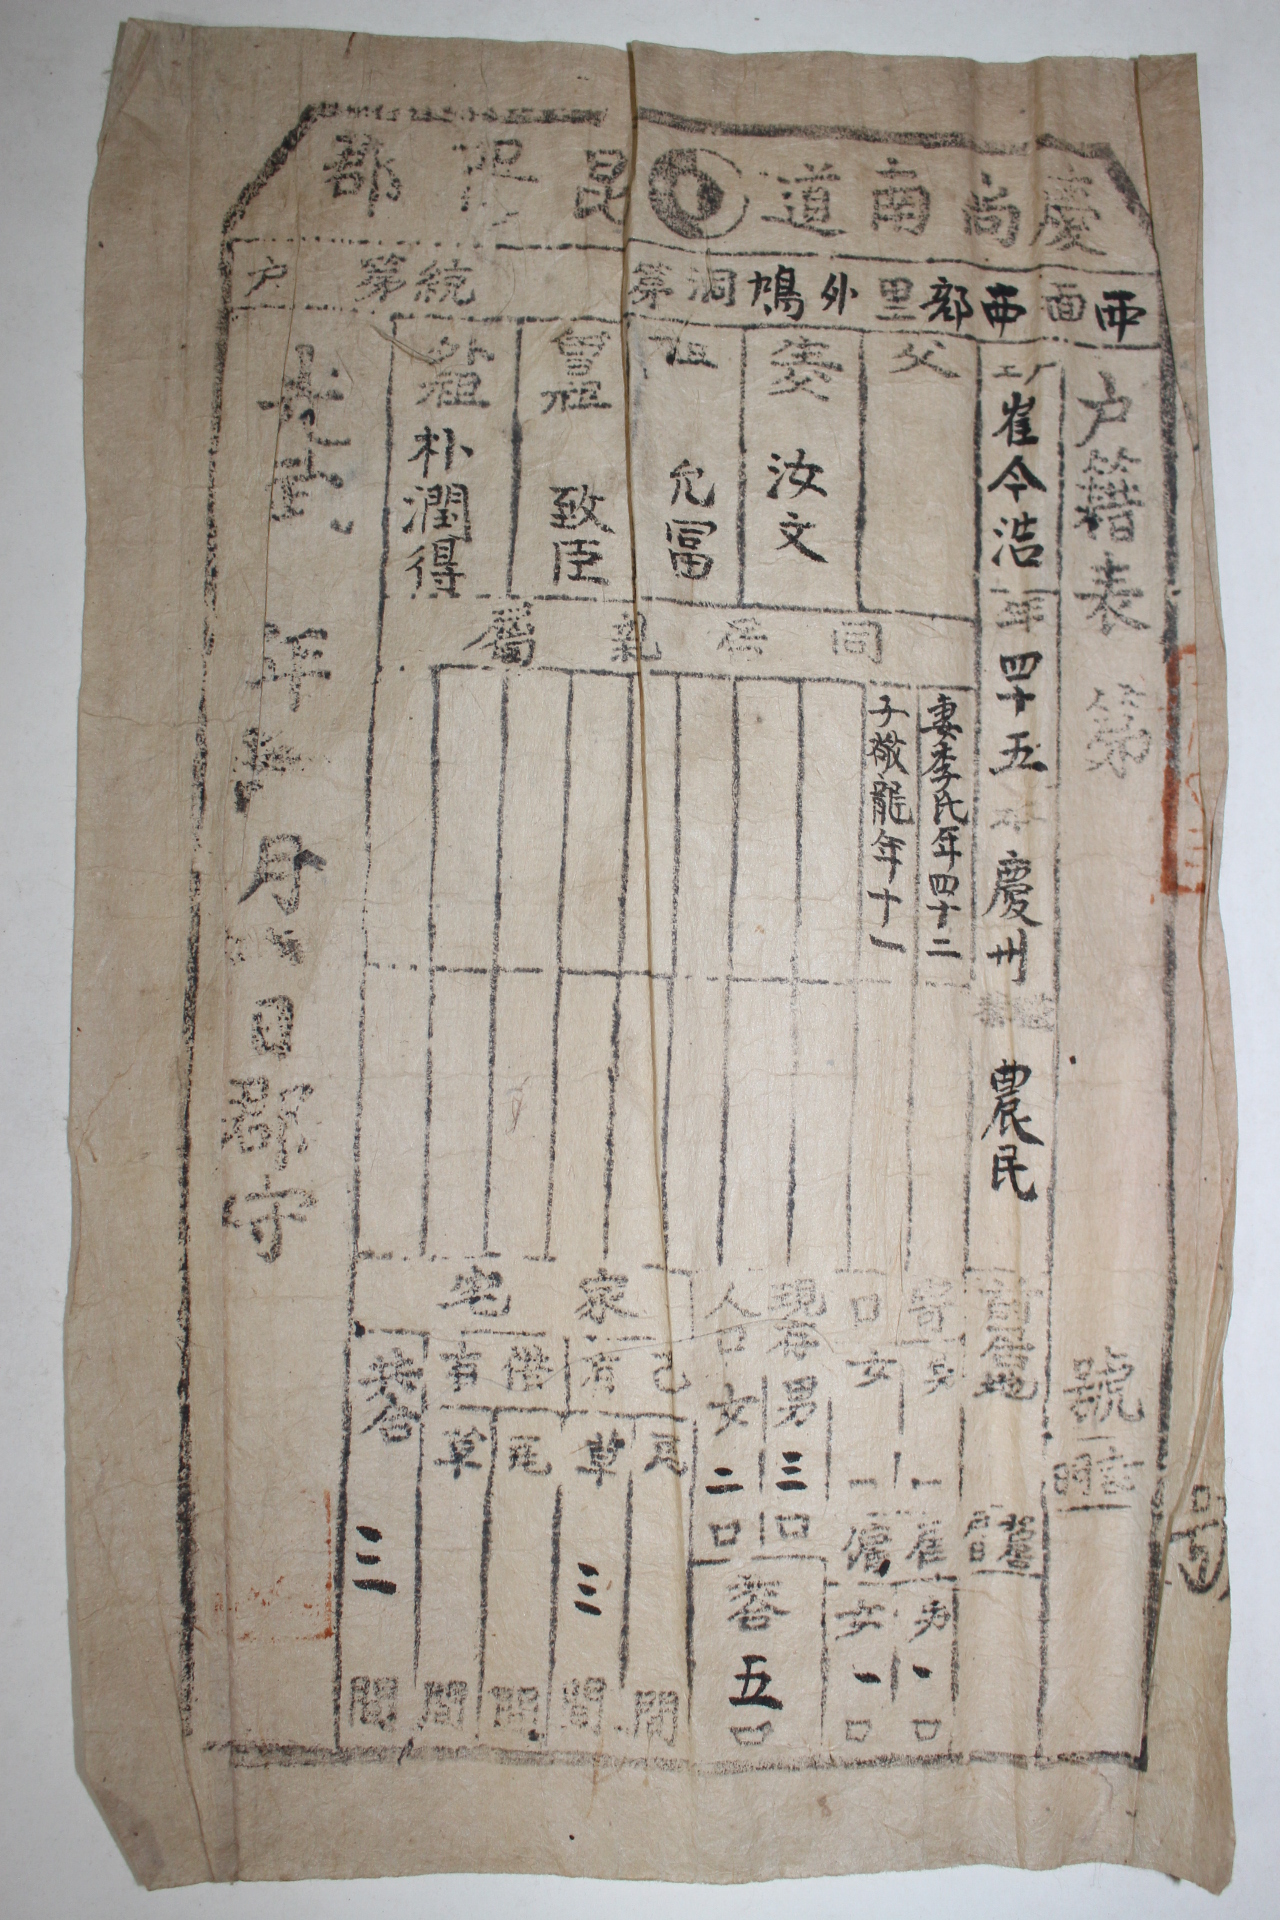 慶尚南道 昆陽郡
西面西部里外鳩洞第 統第 戶
戶籍表 第 號
崔今浩 年四十五 本慶州 農民
前居地
父
妻 汝文
祖 允冨
曾祖 致臣
外祖 朴潤得
同居親屬
妻李氏年四十二
子敬龍年十一
寄口 男 女
雇傭 男一口 女一口
現存人口 男三口 女二口
共合五口
家宅
己有 瓦 間 草三間
借有 瓦 間 草 間
共合三間
光武 年 月 日郡守